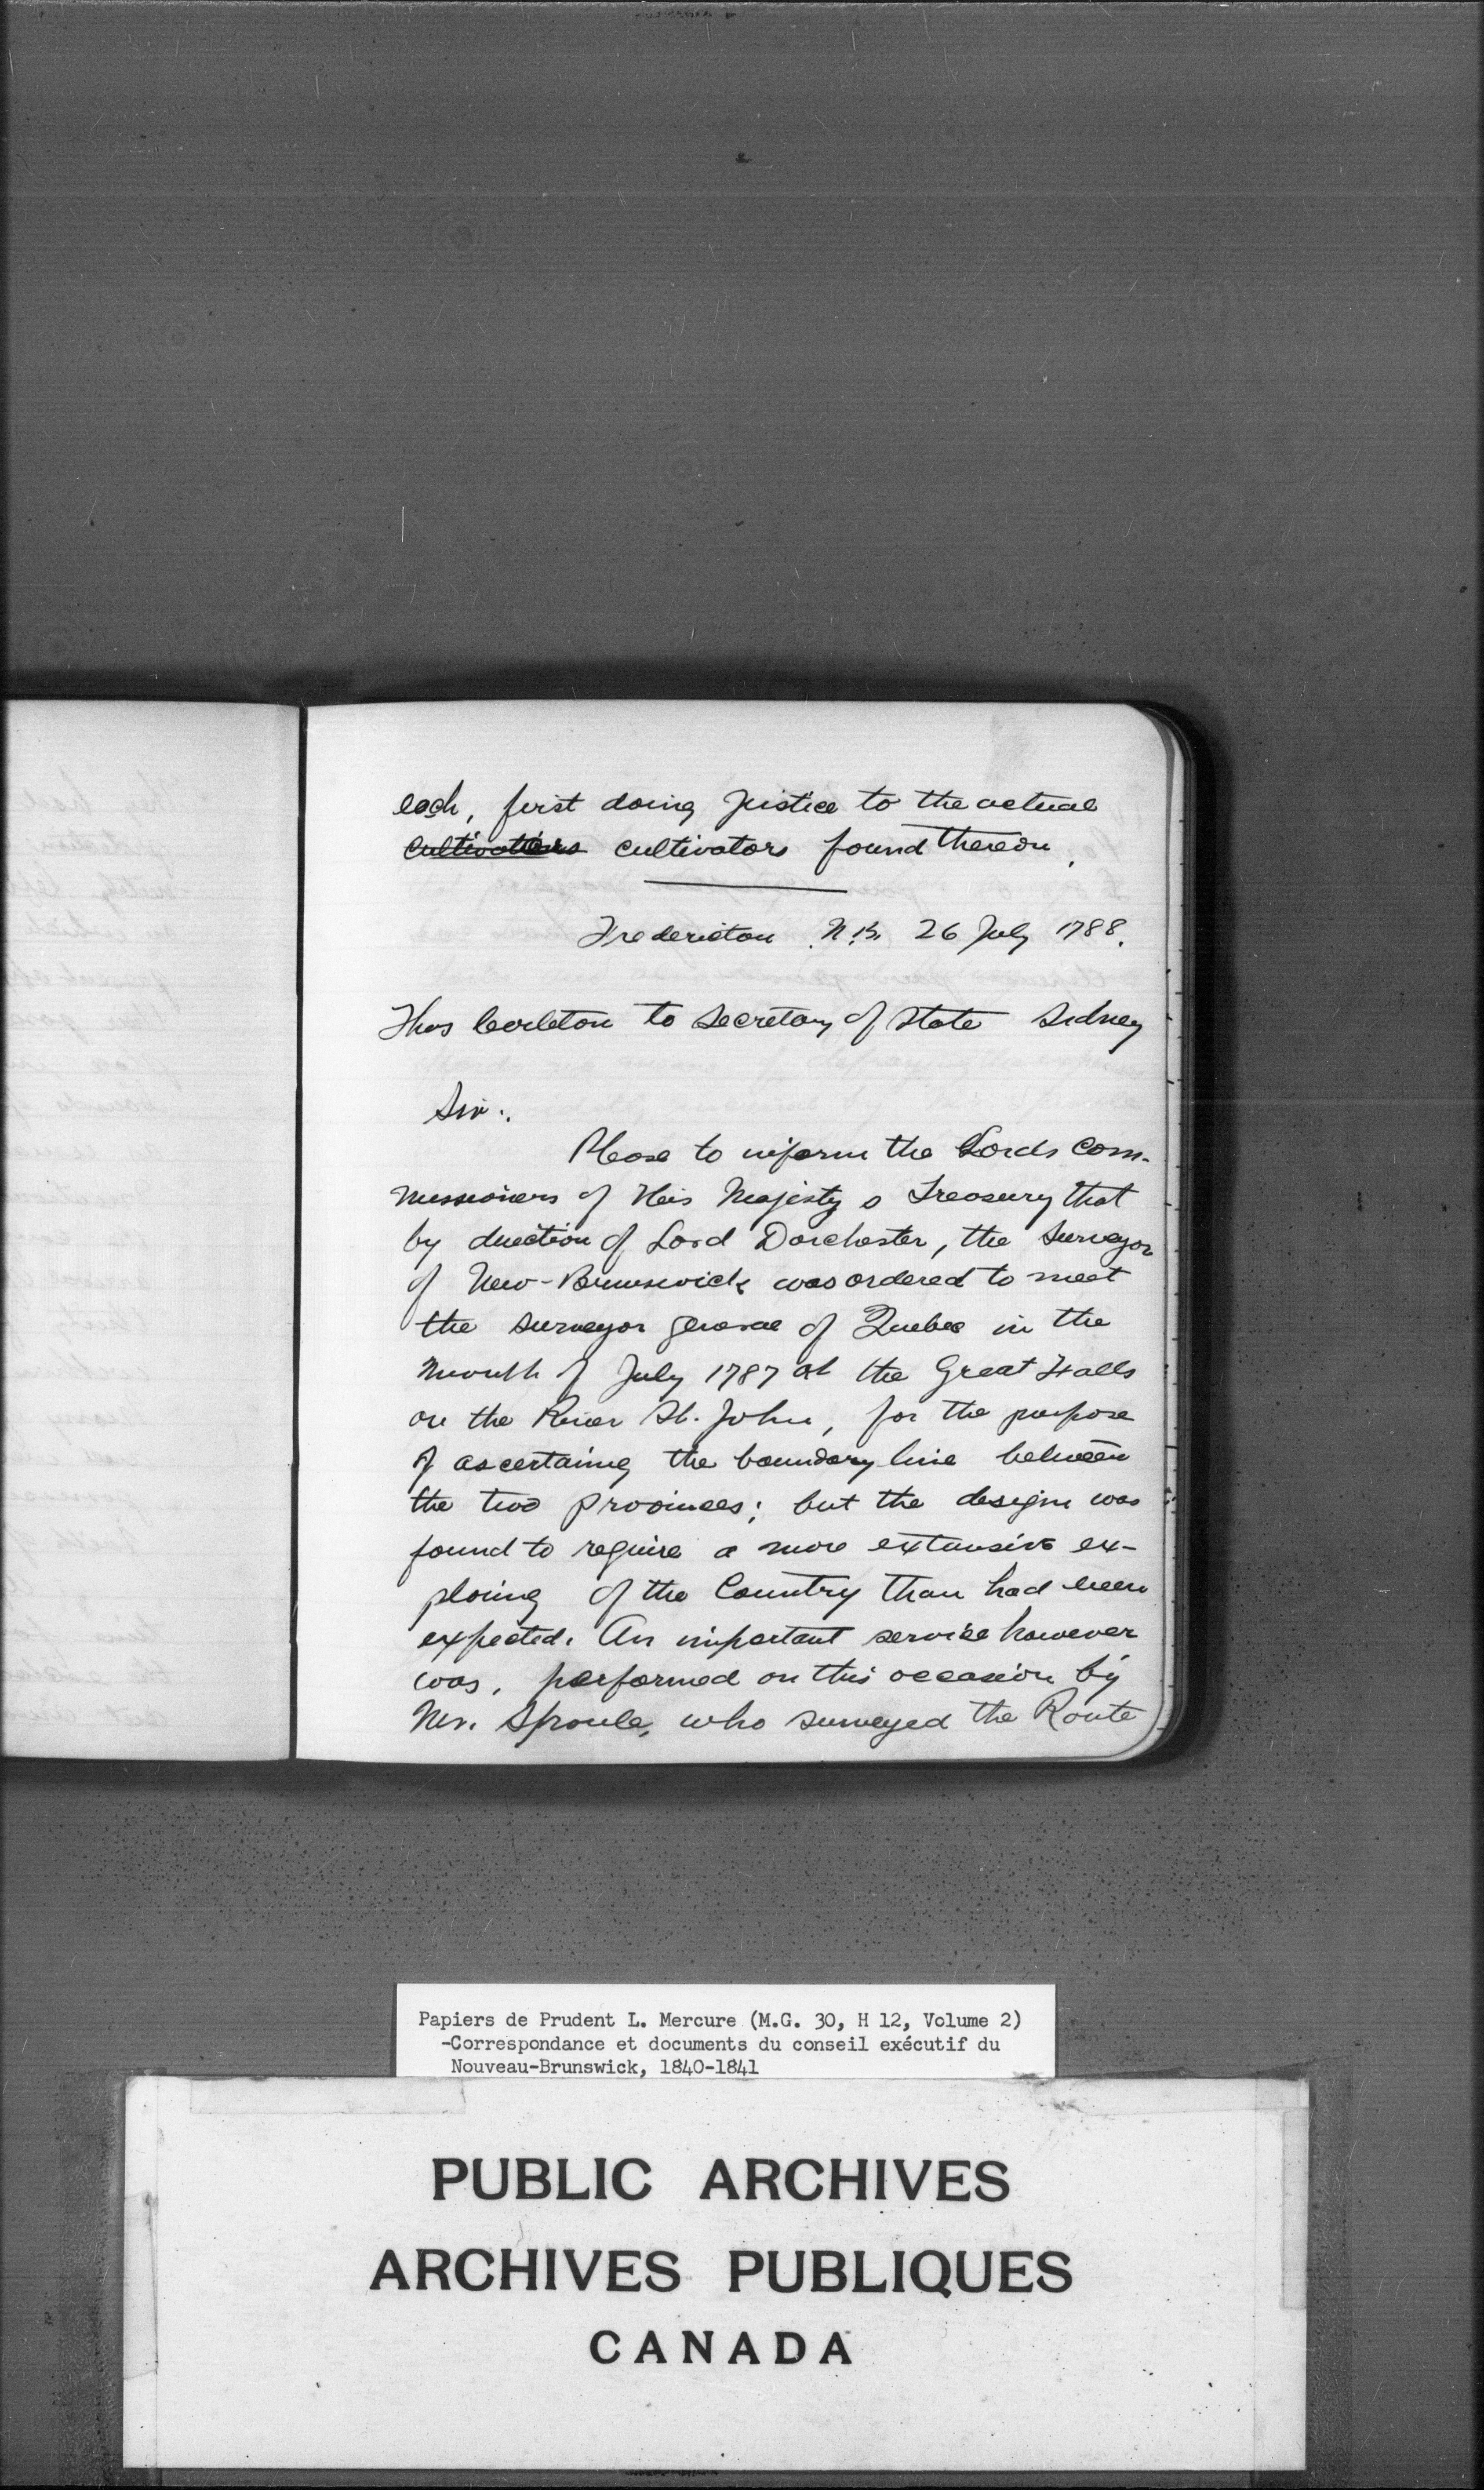 each, first doing justice to the actual
cultivators cultivators found thereon.
Fredericton N.B. 26 July 1788.
Thos Carleton to Secretary of State Sidney
Sir:
Please to inform the Lords Com-
missioners of His Majesty s Treasury that
by direction of Lord Dorchester, the Surveyor
of New-Brunswick was ordered to meet
the surveyor general of Quebec in the
month of July 1787 at the Great Falls
on the River St. John, for the purpose
of ascertaining the boundary line between
the two provinces; but the design was
found to require a more extensive ex-
ploring of the Country than had been
expected. An important service however
was, performed on this occasion by
Mr. Sproule, who surveyed the Route
Papiers de Prudent L. Mercure (M.G. 30, H 12, Volume 2)
-Correspondance et documents du conseil exécutif du
Nouveau-Brunswick, 1840-1841
PUBLIC ARCHIVES
ARCHIVES PUBLIQUES
CANADA